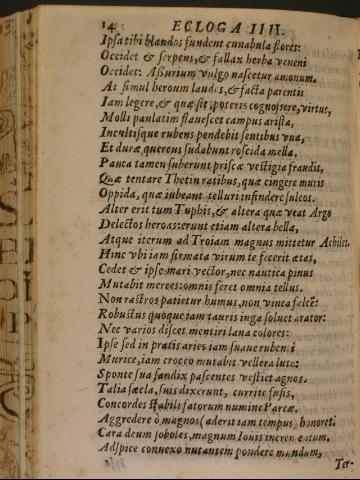 14 ECLOGA IIII.
Ipsa tibi blandos fundent cunabula flores:
Occidet & serpens, & fallax herba veneni
Occidet: Aßurium vulgo nascetur amonum.
At simul heroum laudes, & facta parentis
Iam legere, & quæ sit, poteris cognoscere, virtus,
Molli paulatim flauescet campus arista,
Incultisque rubens pendebit sentibus vua,
Et duræ quercus sudabunt roscida mella.
Pauca tamen suberunt priscæ vestigia fraudis,
Quæ tentare Thetin ratibus, quæ cingere muris
Oppida, quæ iubeant telluri infindere sulcos.
Alter erit tum Tiphis, & altera quæ veat Argo
Delectos heroas: erunt etiam altera bella,
Atque iterum ad Troiam magnus mittetur Achiles.
Hinc vbi iam firmata virum te fecerit ætas,
Cedet & ipse mari vector, nec nautica pinus
Mutabit merces: omnis feret omnia tellus.
Non rastros patietur humus, non vinea falcē:
Robustus quoque iam tauris iuga soluet arator:
Nec varios discet mentiri lana colores:
Ipse sed in pratis aries iam suaue rubenti
Murice, iam croceo mutabit vellera luto:
Sponte sua sandix pascentes vestiet agnos.
Talia sæcla, suis dixerunt, currite fusis,
Concordes stabili fatorum numine Parcæ.
Aggredere ô magnos (aderit iam tempus) honores:
Cara deum soboles, magnum Iouis incrementum.
Adspice conuexo nutantem pondere mundum,
Ter-